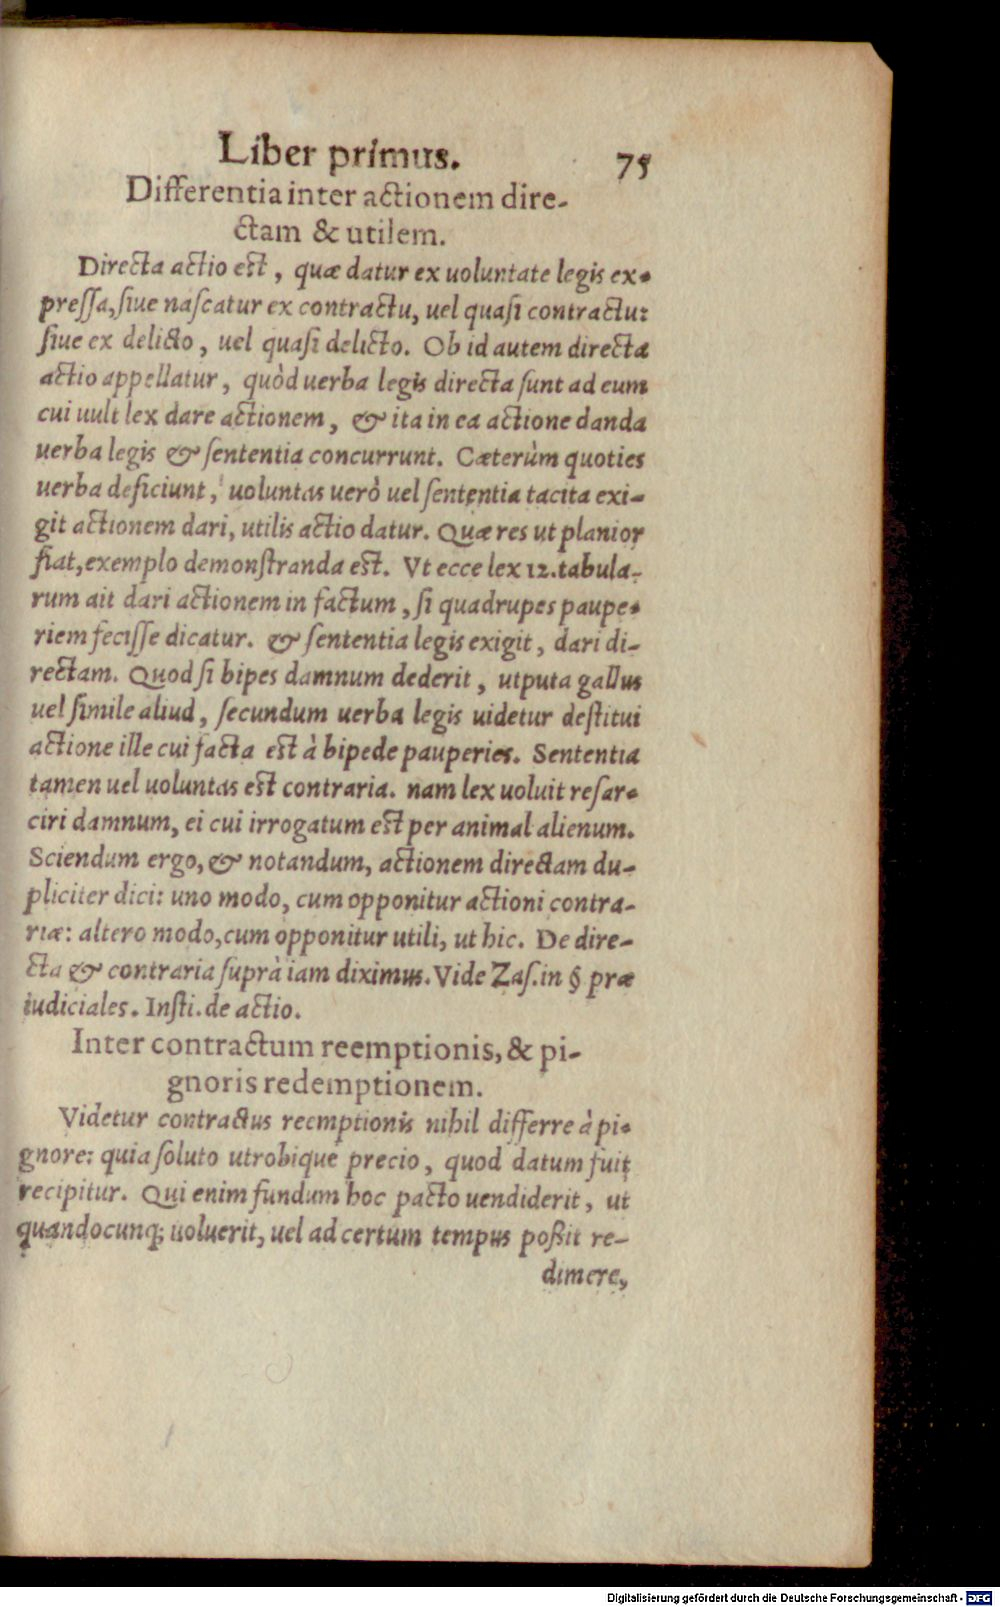 Liber primus. 75
Differentia inter actionem dire-
ctam & utilem.
Directa actio est, quæ datur ex uoluntate legis ex-
pressa, siue nascatur ex contractu, uel quasi contractu:
siue ex delicto, uel quasi delicto. Ob id autem directa
actio appellatur, quòd uerba legis directa sunt ad eum
cui uult lex dare actionem, & ita in ea actione danda
uerba legis & sententia concurrunt. Cæterùm quoties
uerba deficiunt, uoluntas uerò uel sententia tacita exi-
git actionem dari, utilis actio datur. Quæ res ut planior
fiat, exemplo demonstranda est. Vt ecce lex 12. tabula-
rum ait dari actionem in factum, si quadrupes paupe-
riem fecisse dicatur. & sententia legis exigit, dari di-
rectam. Quod si bipes damnum dederit, utputa gallus
uel simile aliud, secundum uerba legis uidetur destitui
actione ille cui facta est à bipede pauperies. Sententia
tamen uel uoluntas est contraria. nam lex uoluit resar-
ciri damnum, ei cui irrogatum est per animal alienum.
Sciendum ergo, & notandum, actionem directam du-
pliciter dici: uno modo, cum opponitur actioni contra-
riæ: altero modo, cum opponitur utili, ut hic. De dire-
cta & contraria suprà iam diximus. Vide Zas. in § præ
iudiciales. Insti. de actio.
Inter contractum reemptionis, & pi-
gnoris redemptionem.
Videtur contractus reemptionis nihil differre à pi-
gnore: quia soluto utrobique precio, quod datum fuit
recipitur. Qui enim fundum hoc pacto uendiderit, ut
quandocunq; uoluerit, uel ad certum tempus poßit re-
dimere,
Digitalisierung gefördert durch die Deutsche Forschungsgemeinschaft - DFG